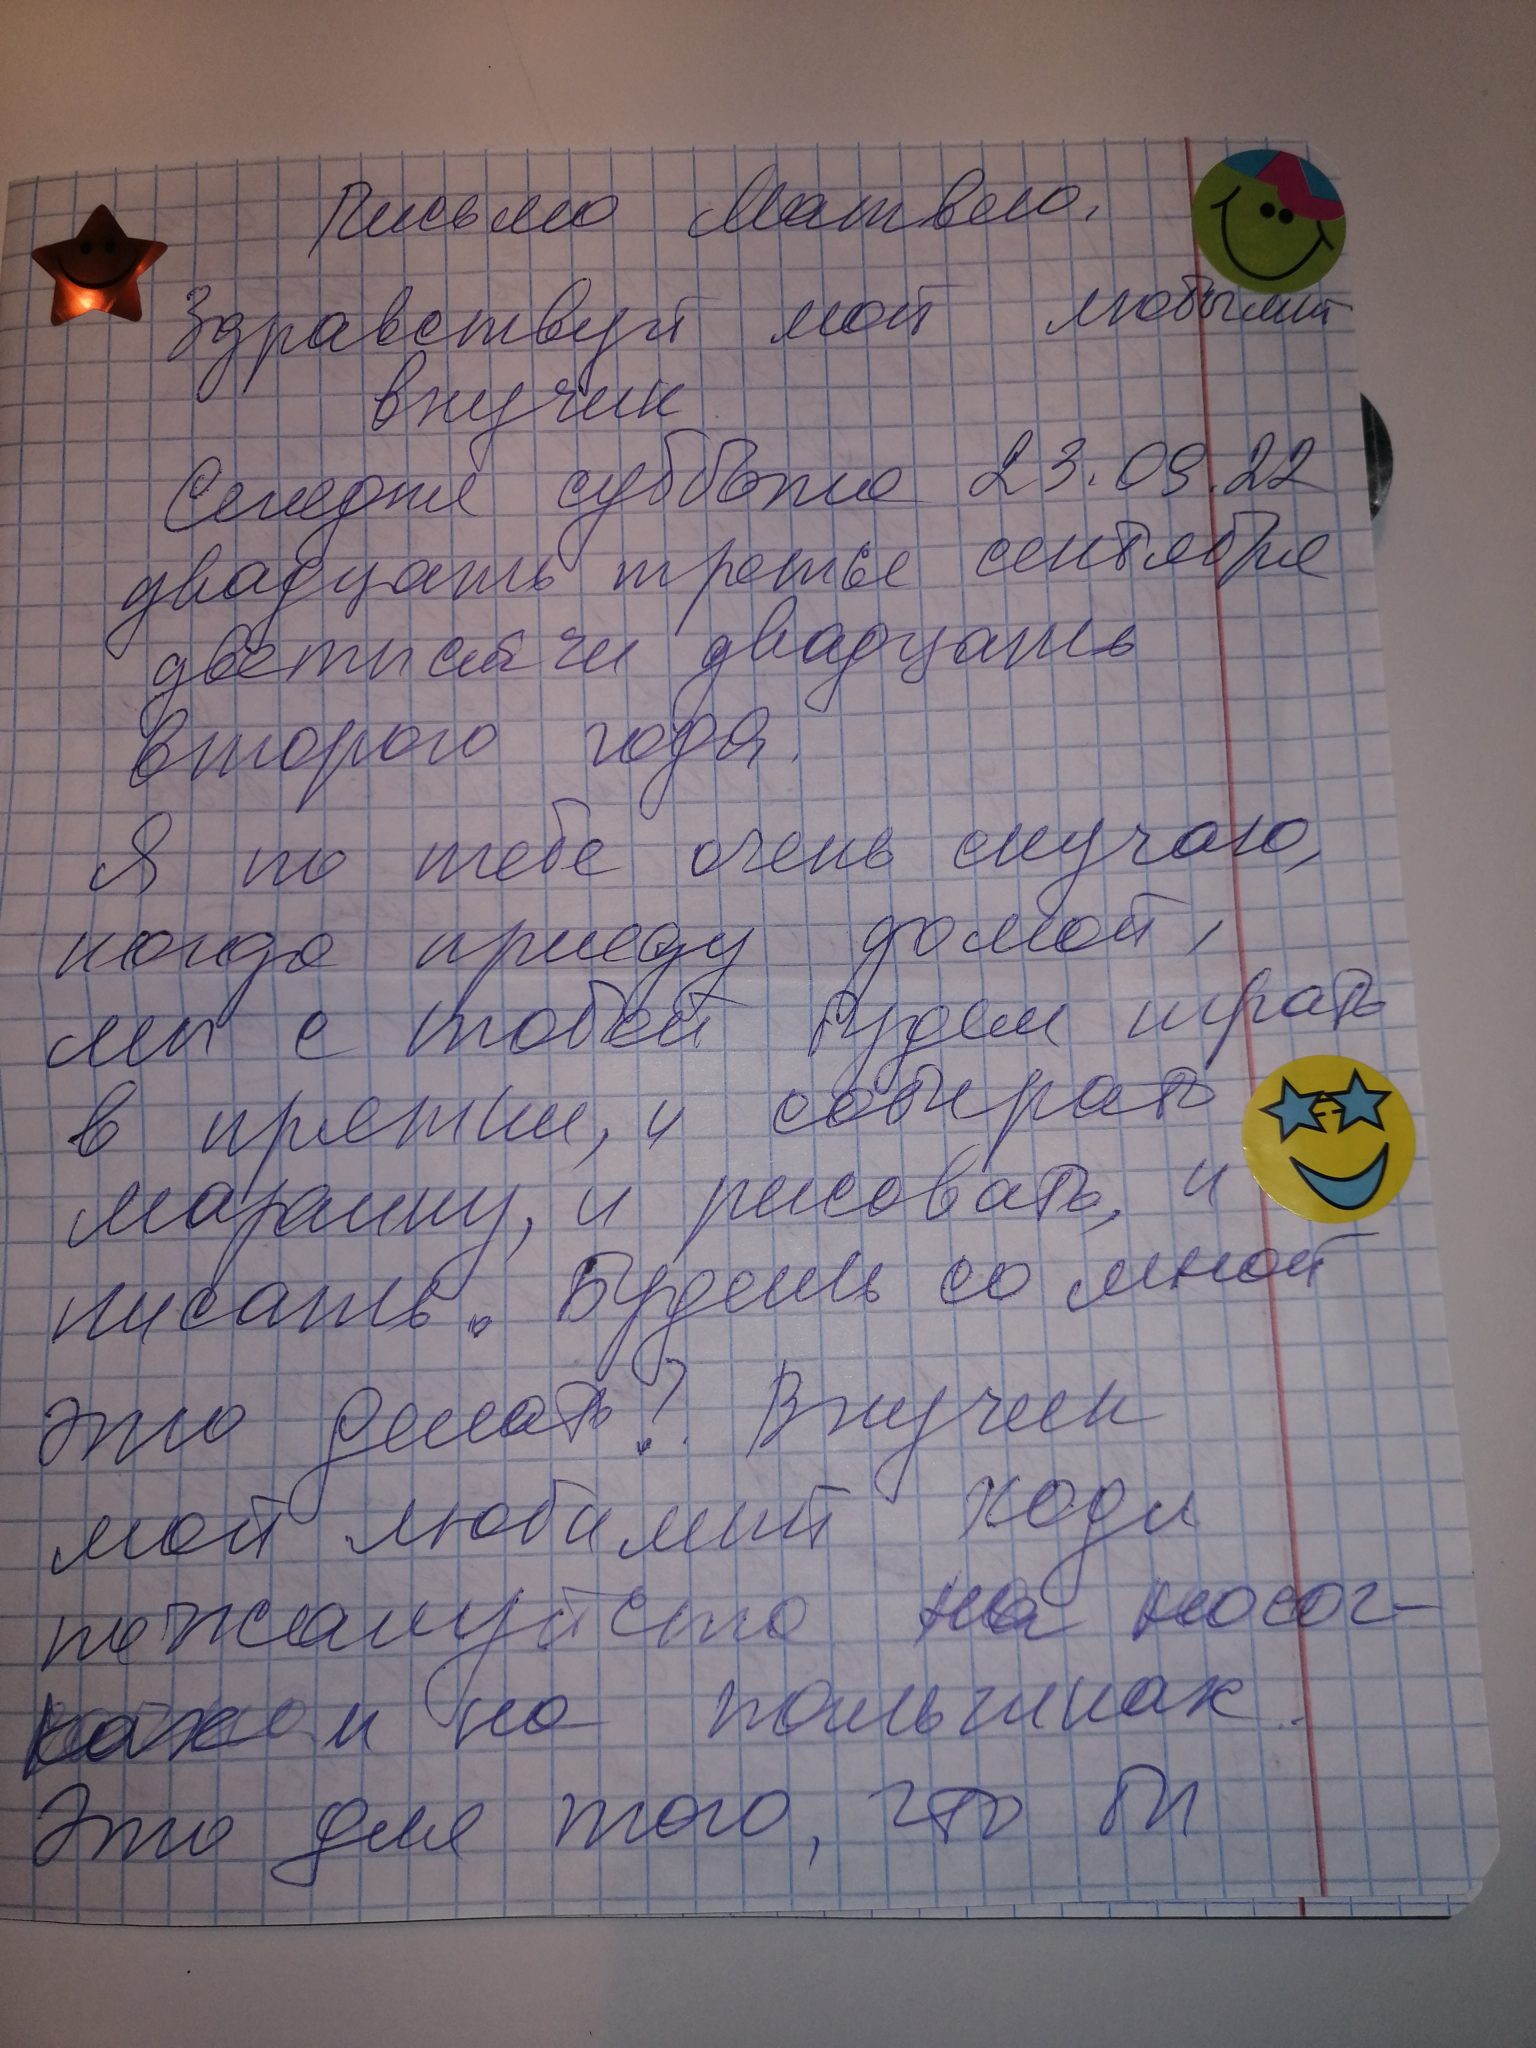 Письмо Матвею.
Здравствуй мой любымий
внучик
Сегодня суббота 23.09.22
двадцать третье сентября
дветысячи двадцать
второго года.
Я по тебе очень скучаю,
когда приеду домой,
мы с тобей будем играть
в прятки, и собирать
марашку, и рисовать, и
писать. Будешь со мной
это делать? Внучик
мой любимий ходи
пожалуйста на носоч-
ках и на пальчиках.
Это для того, что бы